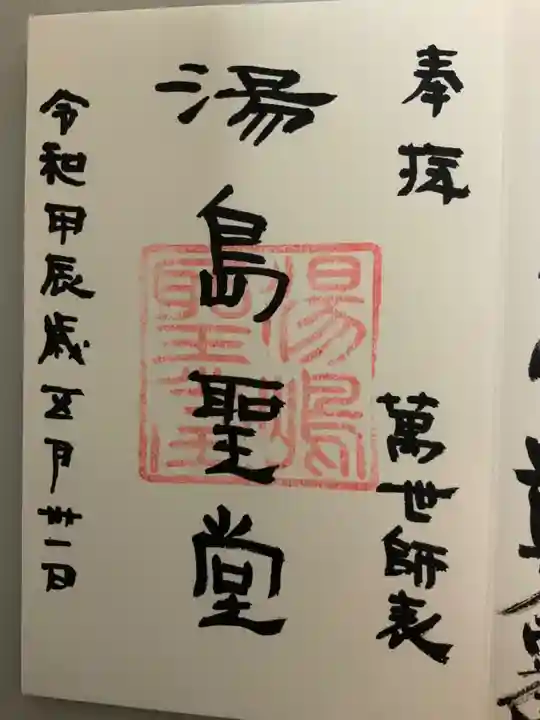 奉拜
萬世師表
湯島聖堂
湯島聖堂
令和甲辰歳五月卅一日